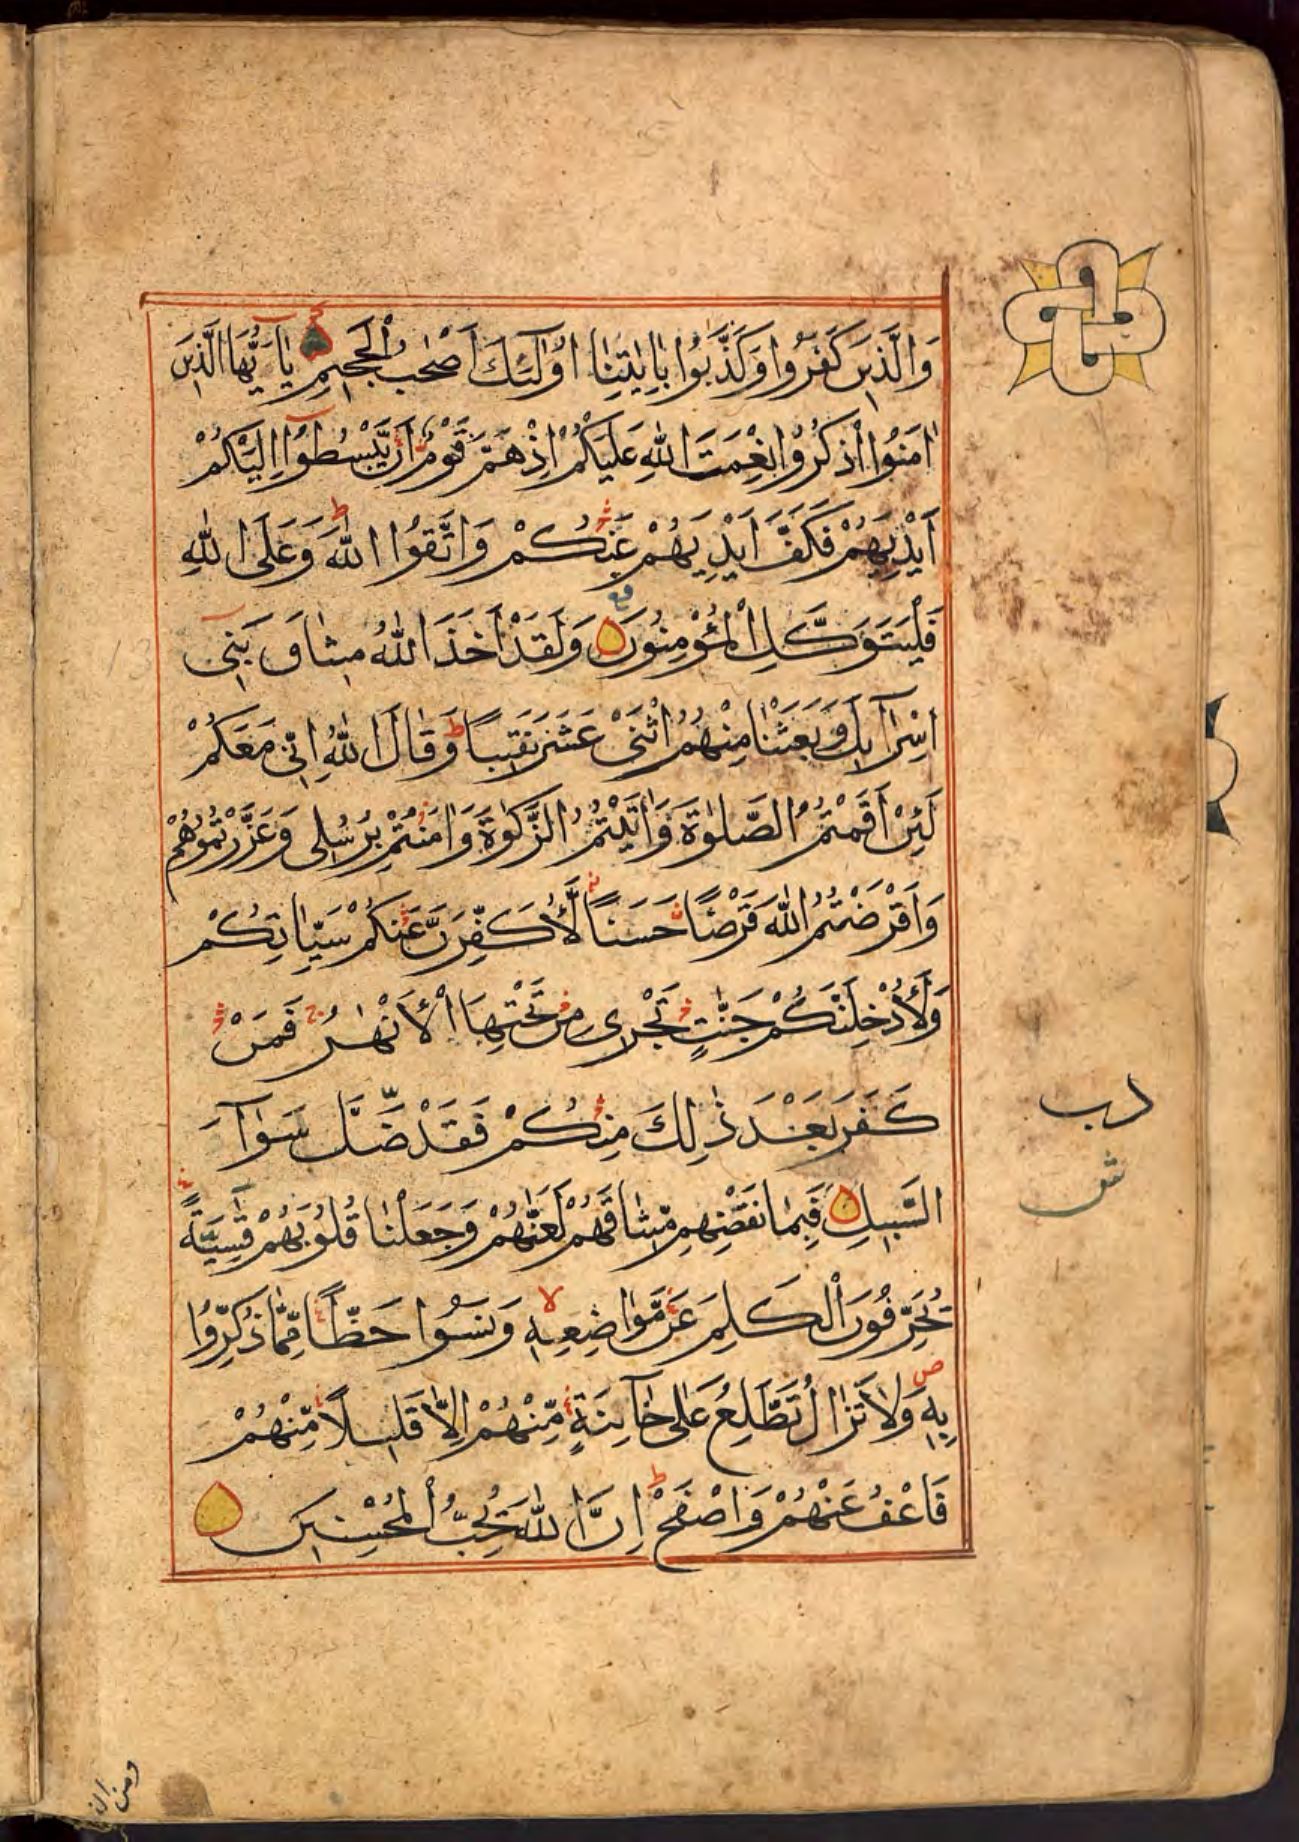 وَالَّذِينَ كَفَرُوا وَكَذَّبُوا بِاٰيٰتِنَا اُولٰٓئِكَ اَصْحٰبُ الْجَحِيْمِ يٰٓاَيُّهَا الَّذِيْنَ
اٰمَنُوا اذْكُرُوْا نِعْمَتَ اللّٰهِ عَلَيْكُمْ اِذْ هَمَّ قَوْمٌ اَنْ يَّبْسُطُوْا اِلَيْكُمْ
اَيْدِيَهُمْ فَكَفَّ اَيْدِيَهُمْ عَنْكُمْ وَاتَّقُوا اللّٰهَ ط وَعَلَى اللّٰهِ
فَلْيَتَوَكَّلِ الْمُؤْمِنُوْنَ وَلَقَدْ اَخَذَ اللّٰهُ مِيثَاقَ بَنِىْٓ
اِسْرَآئِيلَ وَبَعَثْنَا مِنْهُمُ اثْنَىْ عَشَرَ نَقِيْبًا ط وَقَالَ اللّٰهُ اِنِّى مَعَكُمْ
لَئِنْ اَقَمْتُمُ الصَّلٰوةَ وَاٰتَيْتُمُ الزَّكٰوةَ وَاٰمَنْتُمْ بِرُسُلِى وَعَزَّرْتُمُوْهُمْ
وَاَقْرَضْتُمُ اللّٰهَ قَرْضًا حَسَنًا لَّأُكَفِّرَنَّ عَنْكُمْ سَيِّاٰتِكُمْ
وَلَأُدْخِلَنَّكُمْ جَنّٰتٍ تَجْرِى مِنْ تَحْتِهَا الْأَنْهٰرُ ج فَمَنْ
كَفَرَ بَعْدَ ذٰلِكَ مِنْكُمْ فَقَدْ ضَلَّ سَوَآءَ
السَّبِيلِ فَبِمَا نَقْضِهِمْ مِّيثَاقَهُمْ لَعَنّٰهُمْ وَجَعَلْنَا قُلُوْبَهُمْ قٰسِيَةً
يُحَرِّفُونَ الْكَلِمَ عَنْ مَّوَاضِعِهٖ لا وَنَسُوْا حَظًّا مِّمَّا ذُكِّرُوْا
بِهٖ ص وَلَا تَزَالُ تَطَّلِعُ عَلٰى خَآئِنَةٍ مِّنْهُمْ اِلَّا قَلِيْلًا مِّنْهُمْ
فَاعْفُ عَنْهُمْ وَاصْفَحْ ط اِنَّ اللّٰهَ يُحِبُّ الْمُحْسِنِيْنَ
دب
ش
ومن الذ